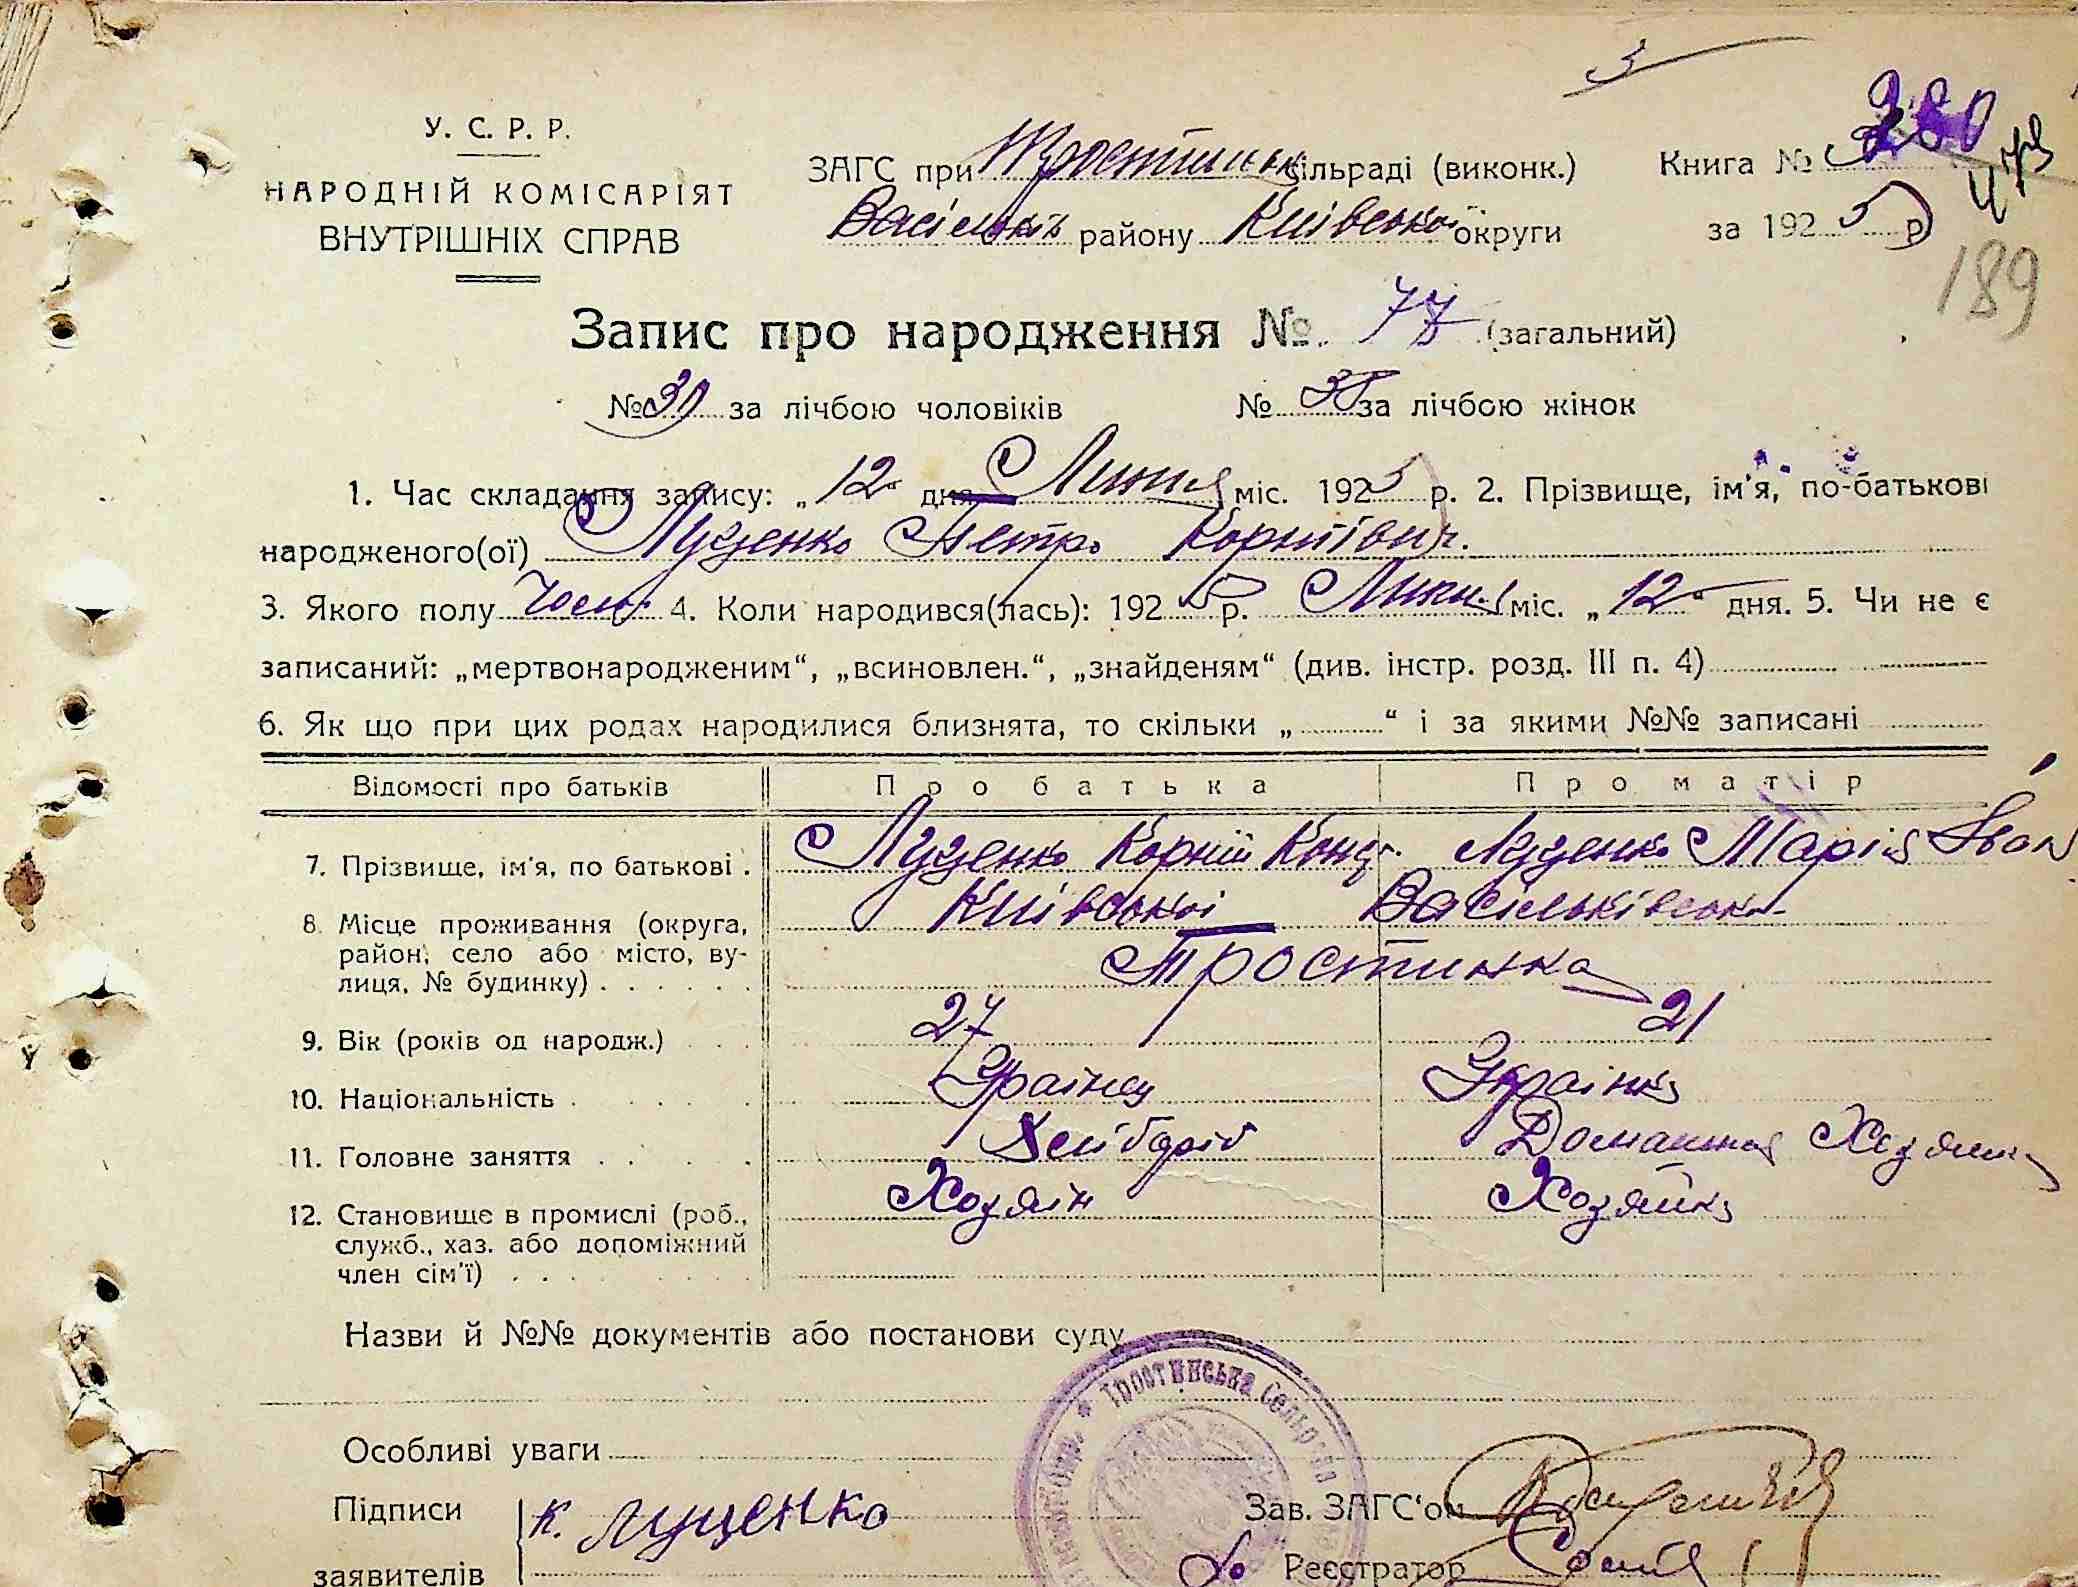 У. С. Р. Р.
НАРОДНІЙ КОМІСАРІЯТ
ВНУТРІШНІХ СПРАВ
ЗАГС при Тростинськ сільраді (виконк.)
Васільків району Київської округи
Книга №
за 1925 р
189
Запис про народження № 77 (загальний)
№ 39 за лічбою чоловіків № 38 за лічбою жінок
1. Час складання запису: „12" дня Липня міс. 1925 р. 2. Прізвище, ім'я, по-батькові
народженого(ої) Луценко Петро Корнієвич.
3. Якого полу Чолов. 4. Коли народився(лась): 1925 р. Липня міс. „12" дня. 5. Чи не є
записаний: „мертвонародженим“, „всиновлен.“, „знайденям“ (див. інстр. розд. III п. 4)
6. Як що при цих родах народилися близнята, то скільки „ “ і за якими №№ записані
Відомості про батьків Про батька Про матір
7. Прізвище, ім'я, по батькові . Луценко Корній Конд. Луценко Марія Іван
8. Місце проживання (округа, район, село або місто, вулиця, № будинку) Київської Васільківськ.
Тростинка
9. Вік (років од народж.) 27 21
10. Національність Українец Українка
11. Головне заняття Хлібороб Домашня Хозяйка
12. Становище в промислі (роб., служб., хаз. або допоміжний член сім'ї) Хозяін Хозяйка
Назви й №№ документів або постанови суду
Тростинська Сельрада
Особливі уваги
Підписи заявителів К. Луценко
Зав. ЗАГС‘ом
Реєстратор